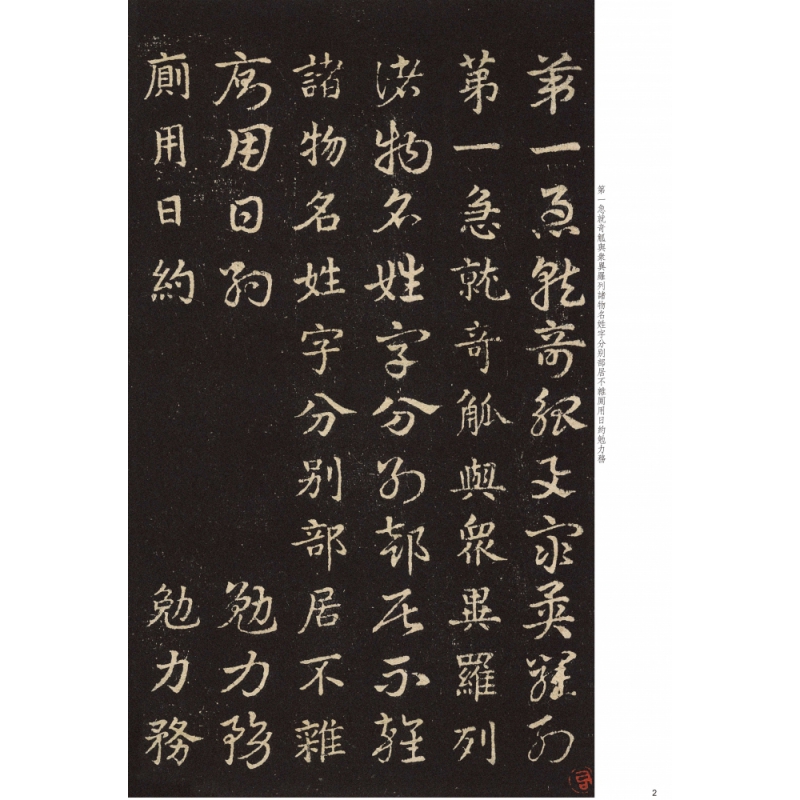 第一急就奇觚與衆異羅列諸物名姓字分别部居不雜廁用日約勉力務
第一急就奇觚與衆異羅列
第一急就奇觚與衆異羅列
諸物名姓字分别部居不雜
諸物名姓字分别部居不雜
廁用日約 勉力務
廁用日約 勉力務
2